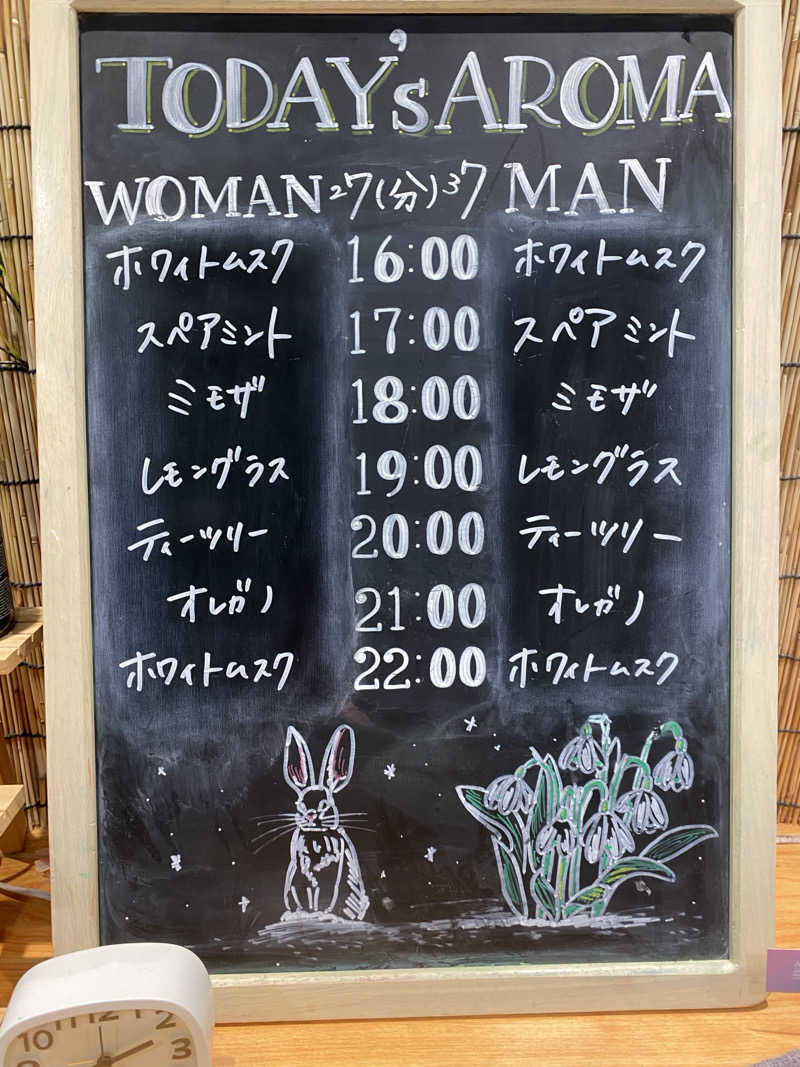 TODAY'S AROMA
WOMAN 27(分)37 MAN
ホワイトムスク 16:00 ホワイトムスク
スペアミント 17:00 スペアミント
ミモザ 18:00 ミモザ
レモングラス 19:00 レモングラス
ティーツリー 20:00 ティーツリー
オレガノ 21:00 オレガノ
ホワイトムスク 22:00 ホワイトムスク
10 11 12 1 2 3